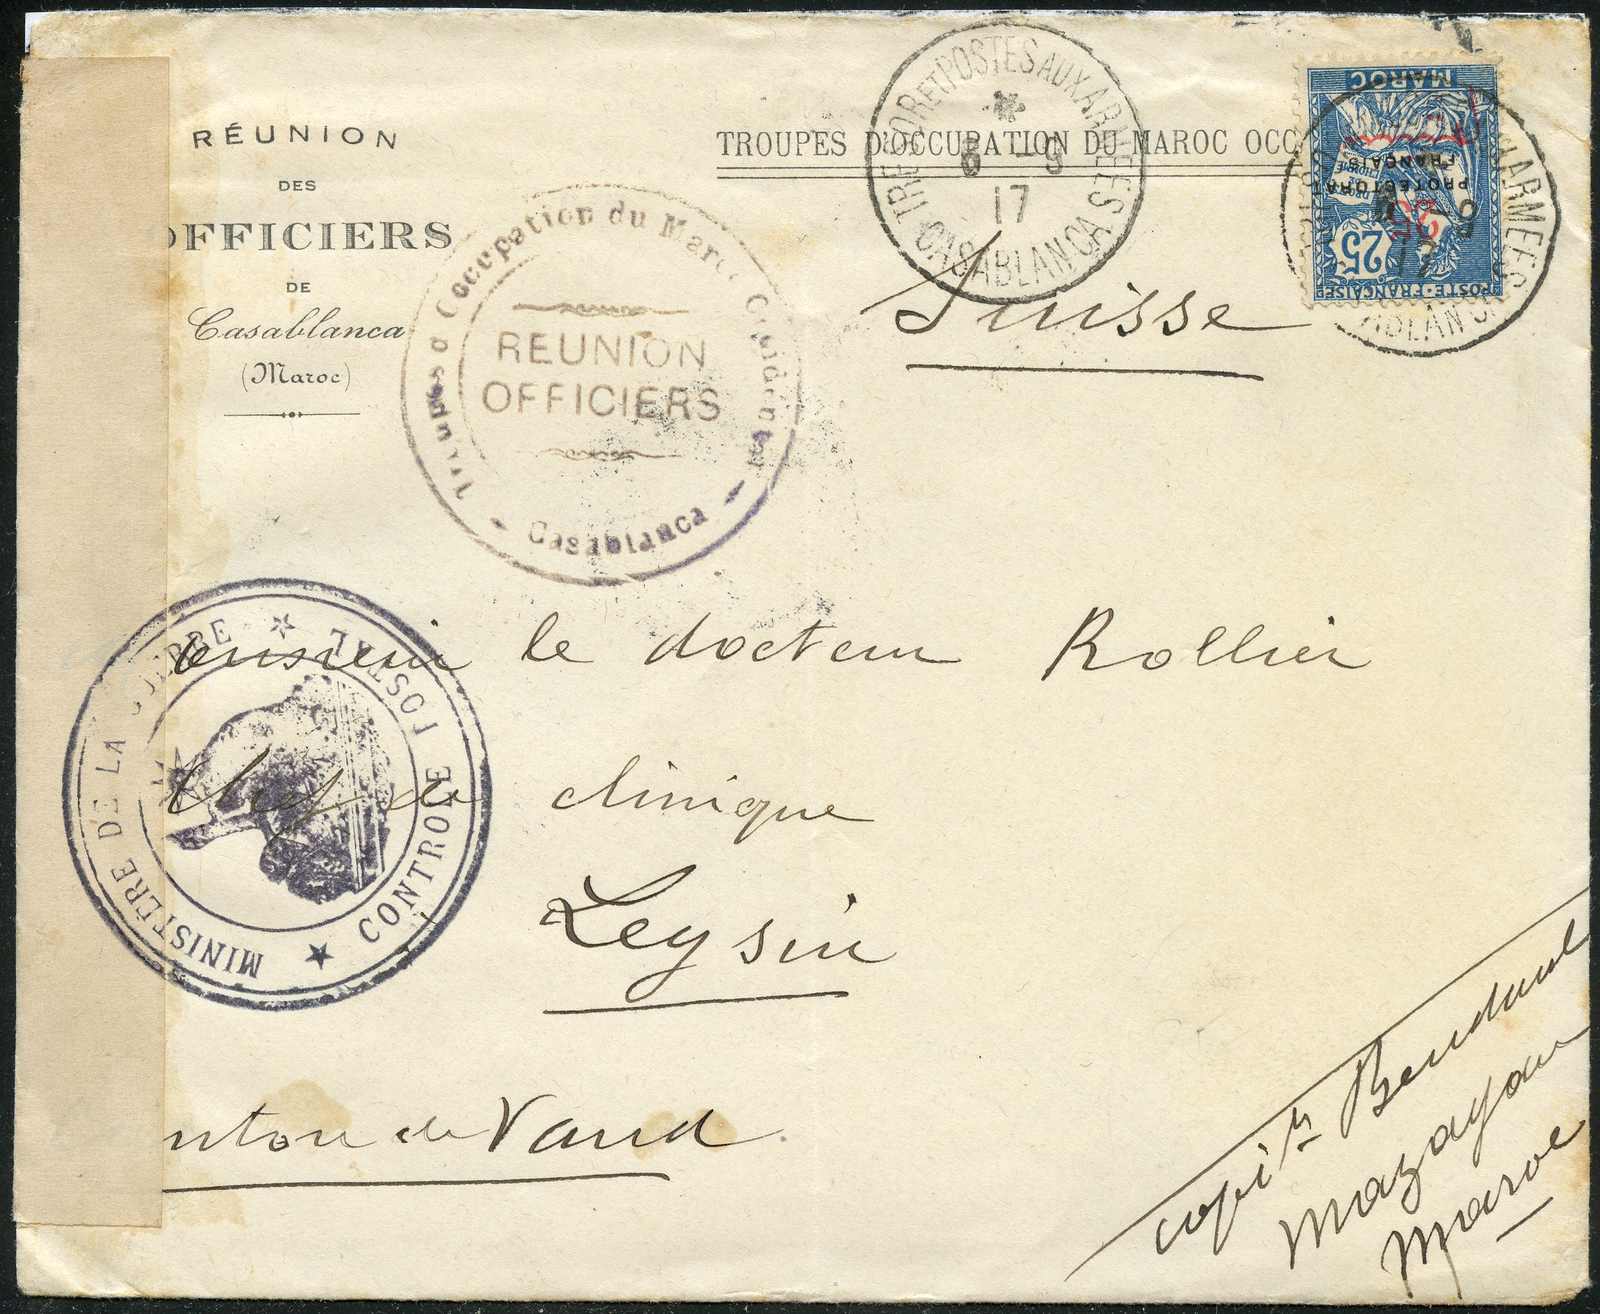 RÉUNION
DES
OFFICIERS
DE
Casablanca
(Maroc)
TROUPES D'OCCUPATION DU MAROC OCC
TRESOR ET POSTES AUX ARMEES
*
6 -9
17
CASABLANCA
MAROC
PROTECTORAT
FRANÇAIS
25
POSTE FRANÇAISE
ARMEES
-9
17
Suisse
Troupes d'Occupation du Maroc Occidental
REUNION
OFFICIERS
Casablanca
MINISTÈRE DE LA GUERRE
CONTROLE POSTAL
onsieur le docteur Rollier
Chef de clinique
Leysin
nton de Vaud
Mazagan
Maroc